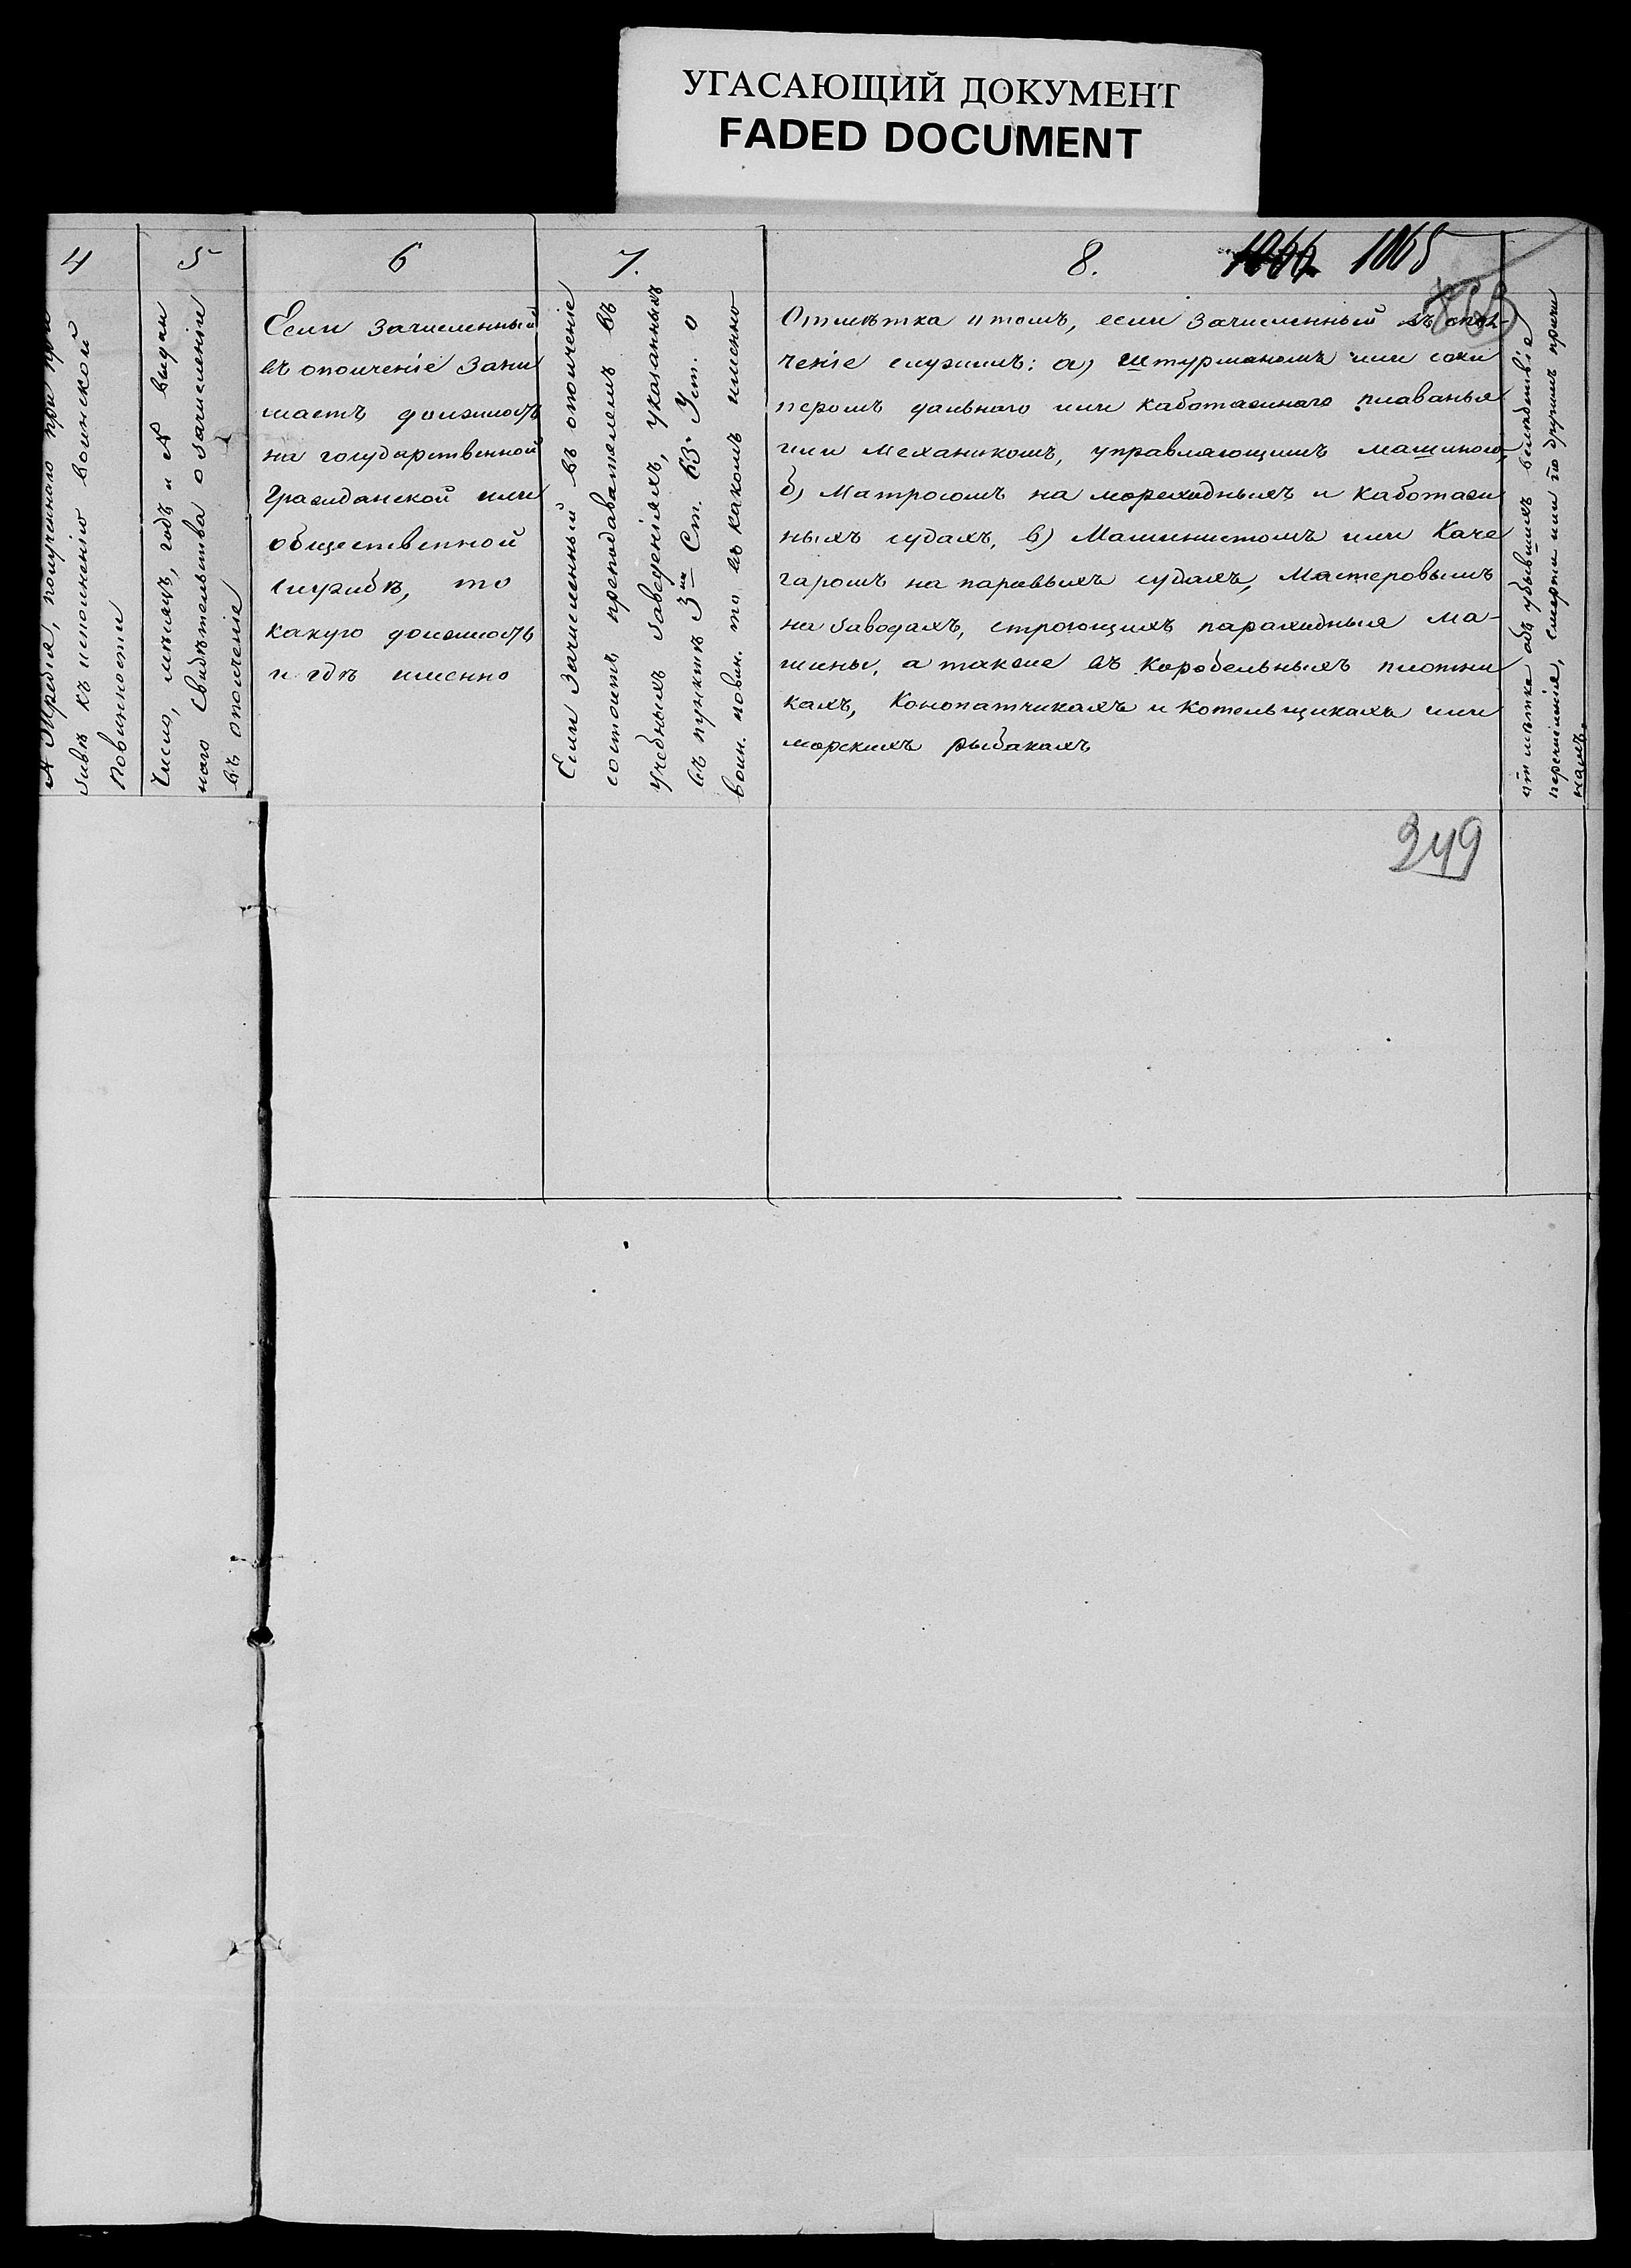 УГАСАЮЩИЙ ДОКУМЕНТ
FADED DOCUMENT
4
№ Жребія, полученнаго при
зывѣ къ исполненію воинской
Повинности
5
Число, мѣсяцъ, годъ и № выдан
наго Свидѣтельства о зачисленіи
въ ополченіе
6
Если Зачисленный
въ ополченіе Зани
маетъ должность
на государственной
Гражданской или
общественной
службѣ, то
какую должность
и гдѣ именно
7.
Если Зачисленный въ ополченіе
состоитъ преподавателемъ въ
учебныхъ Заведеніяхъ, указанныхъ
въ пунктѣ 3мъ Ст. 63. Уст. о
воин. повин. то въ какомъ именно
8.
1066 1065
Отмѣтка о томъ, если Зачисленный въ опол-
ченіе служитъ: а) штурманомъ или шки
перомъ дальнаго или каботажнаго плаванья
или Механикомъ, управляющимъ машиною,
б) Матросомъ на мореходныхъ и каботаж
ныхъ судахъ, в) Машинистомъ или Коче
гаромъ на паровыхъ судахъ, Мастеровымъ
на Заводахъ, строющихъ пароходныя ма-
шины, а также въ Коробельныхъ плотни
кахъ, Конопатчикахъ и Котельщикахъ или
морскихъ рыбакахъ
отмѣтка объ убывшихъ вслѣдствіе
перечисленія, смерти или по другимъ причи
намъ.
249